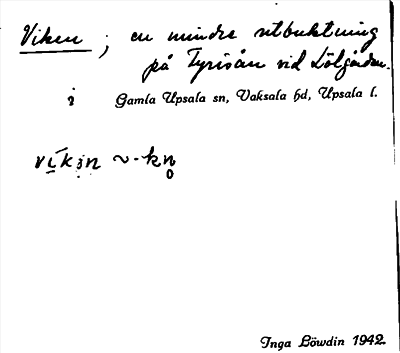 Viken ; en mindre utbuktning
på Fyrisån vid Lötgården.
i Gamla Upsala sn, Vaksala hd, Upsala l.
Inga Löwdin 1942.